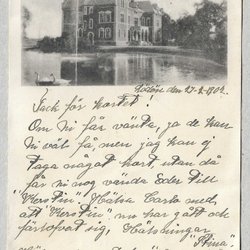 den 27-2-1902.
Tack för kortet!
Om Ni får vänta, ja de kan
ni väl få, men jag kan ej
taga något kort, utan då
får ni nog vända Eder till
"Kerstin". Hälsa Carla med,
att "Kerstin" nu har gått och
förlofvat sig. Helsningar
"Stina"